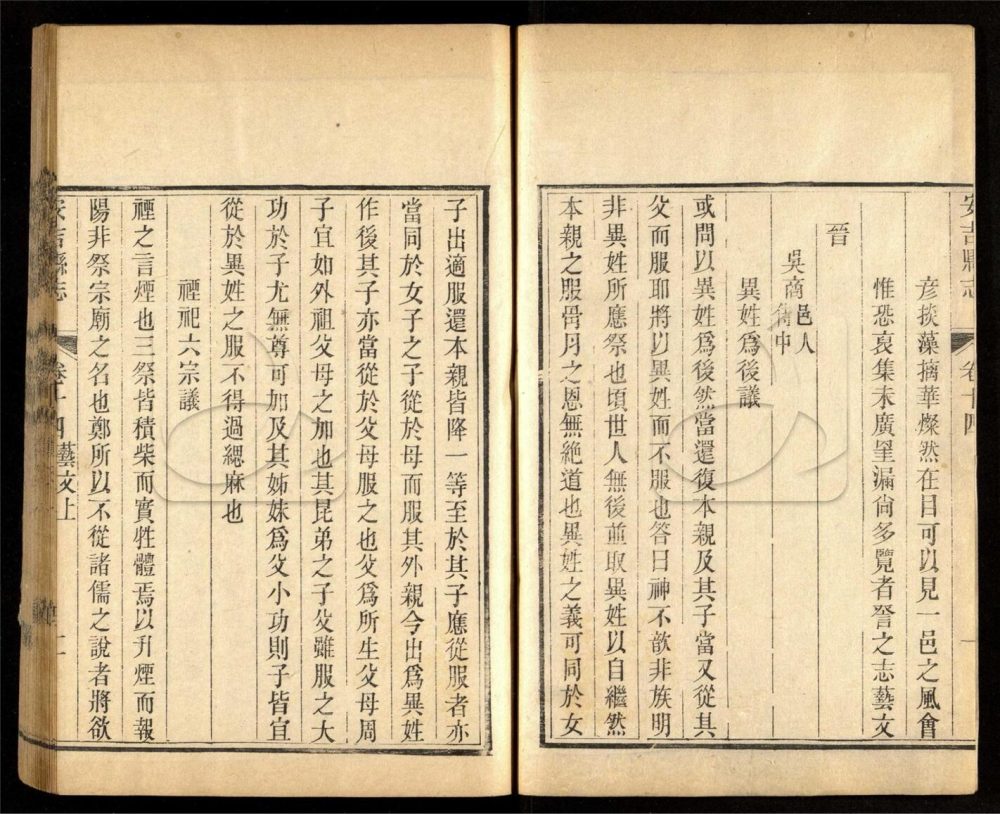 安吉縣志
卷十四
彦掞藻摛華燦然在目可以見一邑之風會
惟恐裒集未廣罣漏尙多覽者詧之志藝文
晉
吳商邑人侍中
異姓爲後議
或問以異姓爲後然當還復本親及其子當又從其
父而服耶將以異姓而不服也答曰神不歆非族明
非異姓所應祭也頃世人無後並取異姓以自繼然
本親之服骨月之恩無絶道也異姓之義可同於女
子出適服還本親皆降一等至於其子應從服者亦
當同於女子之子從於母而服其外親今出爲異姓
作後其子亦當從於父母服之也父爲所生父母周
子宜如外祖父母之加也其昆弟之子父雖服之大
功於子尤無尊可加及其姊妹爲父小功則子皆宜
從於異姓之服不得過緦麻也
禋祀六宗議
禋之言煙也三祭皆積柴而實牲體焉以升煙而報
陽非祭宗廟之名也鄭所以不從諸儒之說者將欲
安吉縣志
卷十四藝文上
二